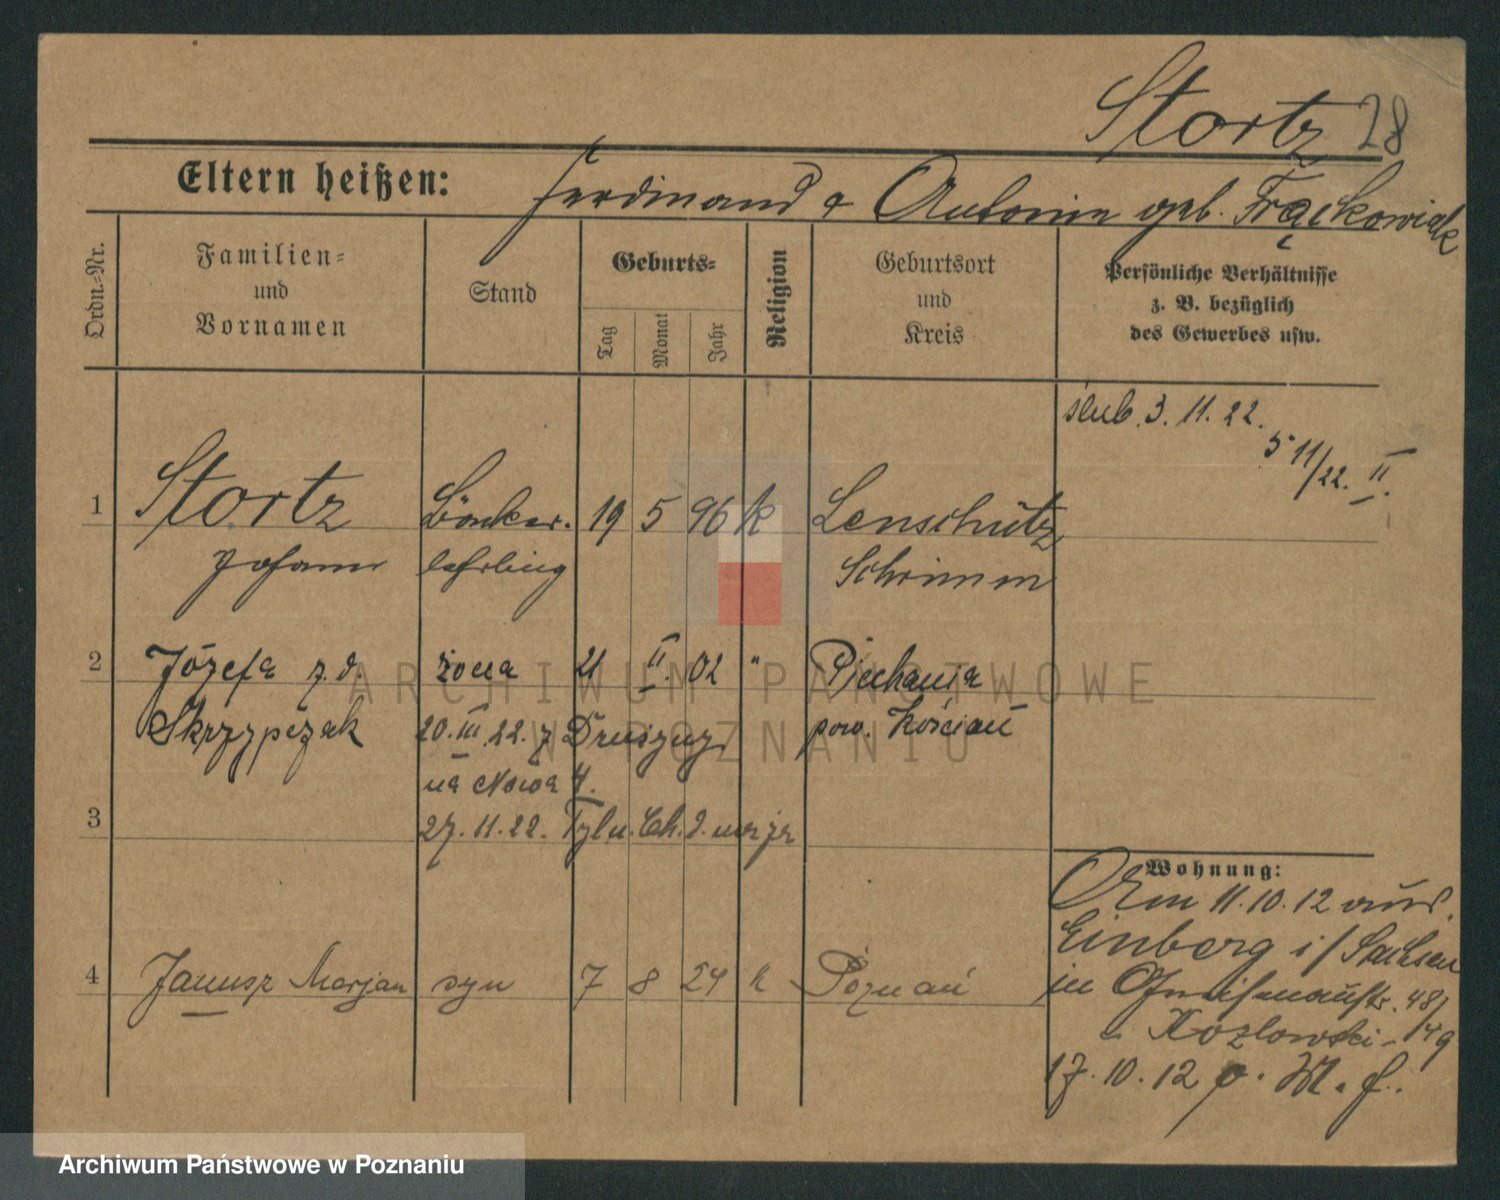 Stortz 28
Eltern heißen: Ferdinand & Antonina geb. Frąckowiak
Ordn.-Nr.
Familien-
und
Vornamen
Stand
Geburts-
Tag
Monat
Jahr
Religion
Geburtsort
und
Kreis
Persönliche Verhältnisse
z. B. bezüglich
des Gewerbes usw.
ślub. 3. 11. 22.
5 11/22. II.
1 Stortz Bäcker. 19 5 96 k Lenschütz
Johann lehrling Schrimm
2 Józefa z.d. żona 21 II. 02 " Piechania
Skrzypczak 20. III. 22. z Drużyny pow. Kościan
na Nowa 4.
3 27. 11. 22. Tyln. Ch. 2.
Wohnung:
Am 11. 10. 12 aus
Einberg i/ Sachsen
in Gneisenaustr. 48/
Kozlowski - 49
17. 10. 12
4 Janusz Marjan syn 7 8 24 k Poznań
ARCHIWUM PAŃSTWOWE
W POZNANIU
Archiwum Państwowe w Poznaniu